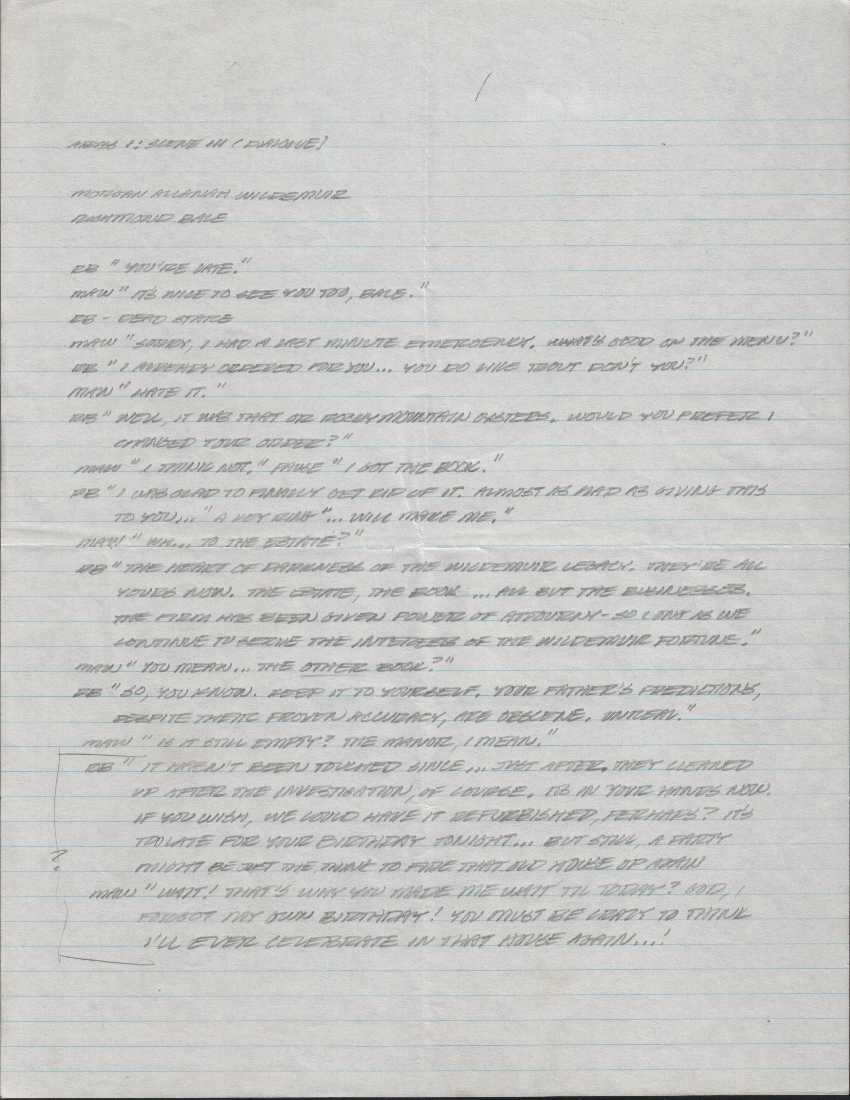 1
1: SCENE IN (DIALOGUE]
MORGAN ALLANAH WILDEMUIR
RICHMOND BALE
RB "YOU'RE LATE."
MAW "ITS NICE TO SEE YOU TOO, BALE."
RB - DEAD STARE
MAW "SORRY, I HAD A LAST MINUTE EMERGENCY. WHAT'S GOOD ON THE MENU?"
RB "I ALREADY ORDERED FOR YOU... YOU DO LIKE TROUT DON'T YOU?"
MAW "HATE IT."
RB "WELL, IT WAS THAT OR ROCKY MOUNTAIN OYSTERS. WOULD YOU PREFER I
CHANGED YOUR ORDER?"
MAW "I THINK NOT." PAUSE "I GOT THE BOOK."
RB "I WAS GLAD TO FINALLY GET RID OF IT. ALMOST AS GLAD AS GIVING THIS
TO YOU..." A KEY RING "... WILL MAKE ME."
MAW "UH... TO THE ESTATE?"
RB "THE HEART OF DARKNESS OF THE WILDEMUIR LEGACY. THEY'RE ALL
YOURS NOW. THE ESTATE, THE BOOK ... ALL BUT THE BUSINESSES.
THE FIRM HAS BEEN GIVEN POWER OF - SO LONG AS WE
CONTINUE TO SERVE THE INTERESTS OF THE WILDEMUIR FORTUNE."
MAW "YOU MEAN... THE OTHER BOOK?"
RB "SO, YOU KNOW. KEEP IT TO YOURSELF. YOUR FATHER'S PREDICTIONS,
DESPITE THEIR PROVEN ACCURACY, ARE OBSCENE. UNREAL."
MAW "IS IT STILL EMPTY? THE MANOR, I MEAN."
RB "IT HASN'T BEEN TOUCHED SINCE... JUST AFTER. THEY CLEANED
UP AFTER THE INVESTIGATION, OF COURSE. ITS IN YOUR HANDS NOW.
IF YOU WISH, WE COULD HAVE IT REFURBISHED, PERHAPS? ITS
TOO LATE FOR YOUR BIRTHDAY TONIGHT... BUT STILL, A PARTY
? MIGHT BE JUST THE THING TO FIRE THAT OLD HOUSE UP AGAIN
MAW "WAIT! THAT'S WHY YOU MADE ME WAIT TIL TODAY? GOD, I
FORGOT MY OWN BIRTHDAY! YOU MUST BE CRAZY TO THINK
I'LL EVER CELEBRATE IN THAT HOUSE AGAIN...!